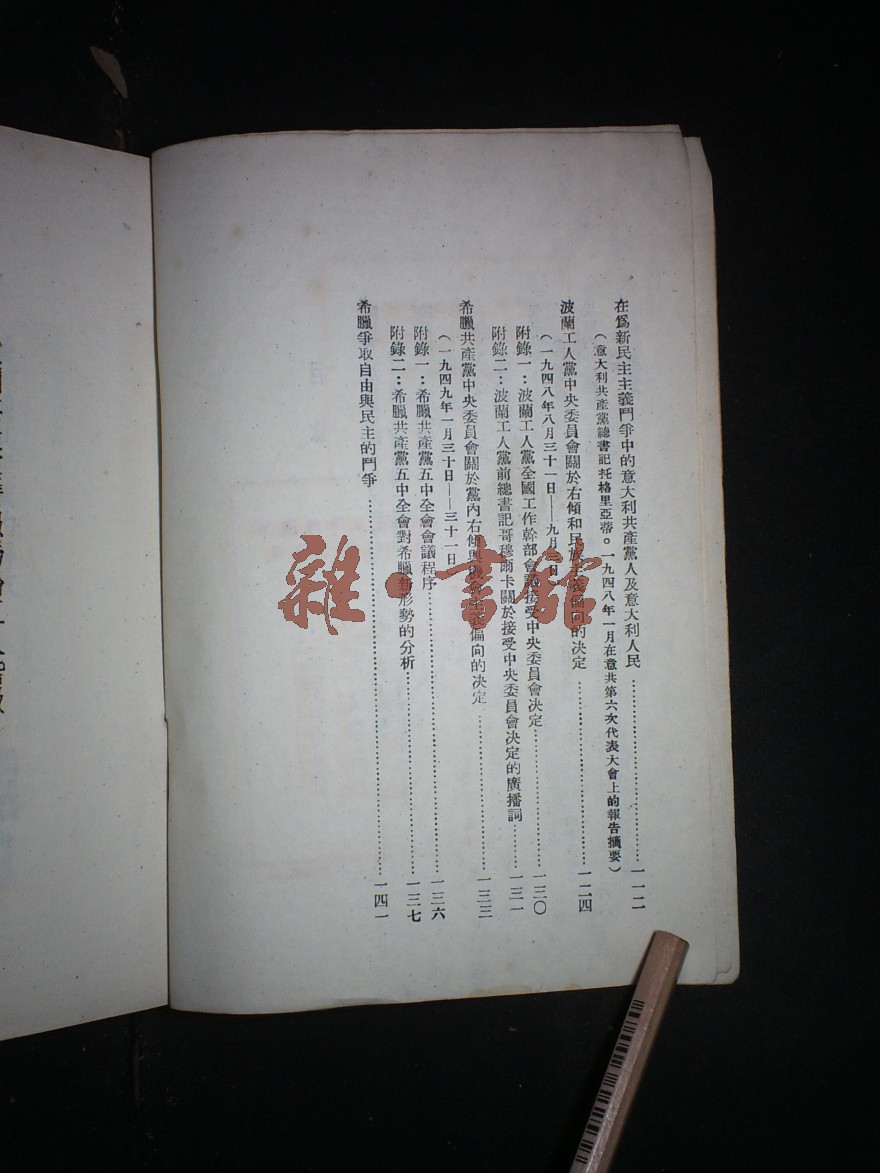 在爲新民主主義鬥爭中的意大利共產黨人及意大利人民⋯⋯一一二
（意大利共產黨總書記托格里亞蒂。一九四八年一月在意共第六次代表大會上的報告摘要）
波蘭工人黨中央委員會關於右傾和民族主義偏向的決定⋯⋯一二四
（一九四八年八月三十一日——九月三日）
附錄一：波蘭工人黨全國工作幹部會議接受中央委員會決定⋯⋯一三〇
附錄二：波蘭工人黨前總書記哥穆爾卡關於接受中央委員會決定的廣播詞⋯⋯一三一
希臘共產黨中央委員會關於黨內右傾與機會主義偏向的決定⋯⋯一三三
（一九四九年一月三十日——三十一日）
附錄一：希臘共產黨五中全會會議程序⋯⋯一三六
附錄二：希臘共產黨五中全會對希臘新形勢的分析⋯⋯一三七
希臘爭取自由與民主的鬥爭⋯⋯一四一
雜·書館